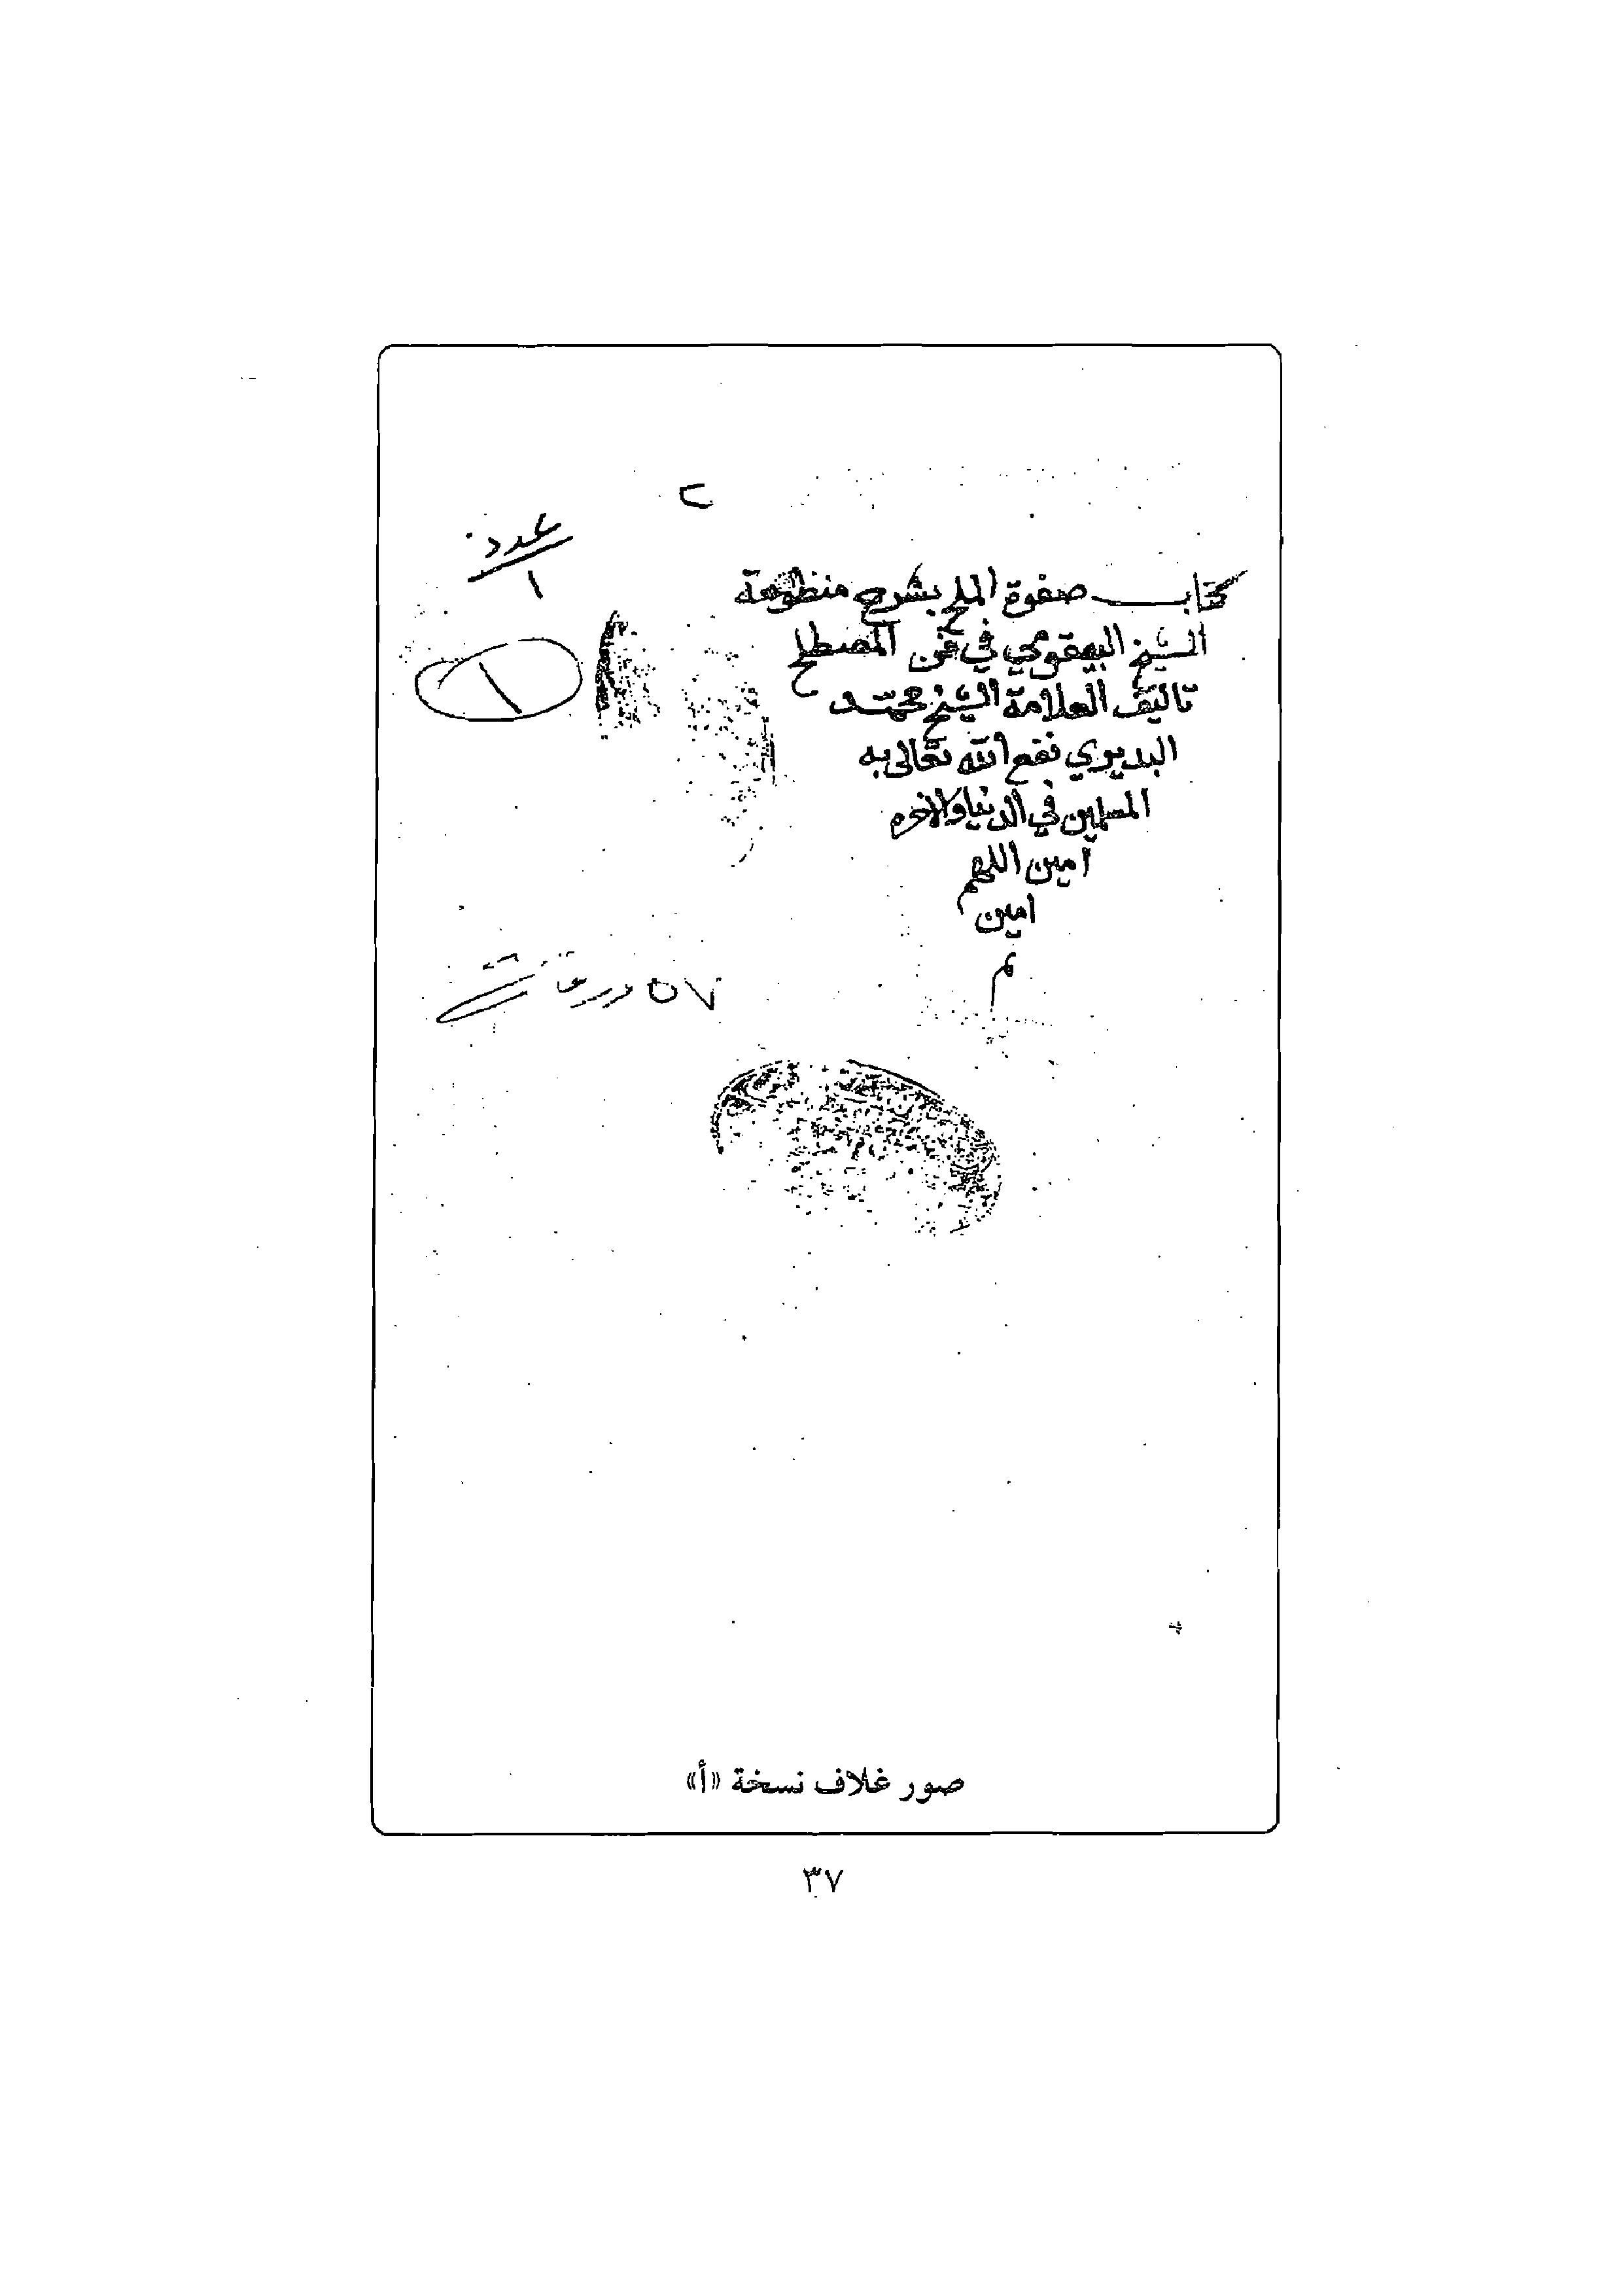 عدد
١
كتاب صفوة الملح بشرح منظومة
الشيخ البيقوني في فن المصطلح
تاليف العلامة الشيخ محمد
البديري نفع الله تعالى به
المسلمين في الدنيا والاخره
امين اللهم
امين
م
١
٥٧
صور غلاف نسخة «أ»
٣٧